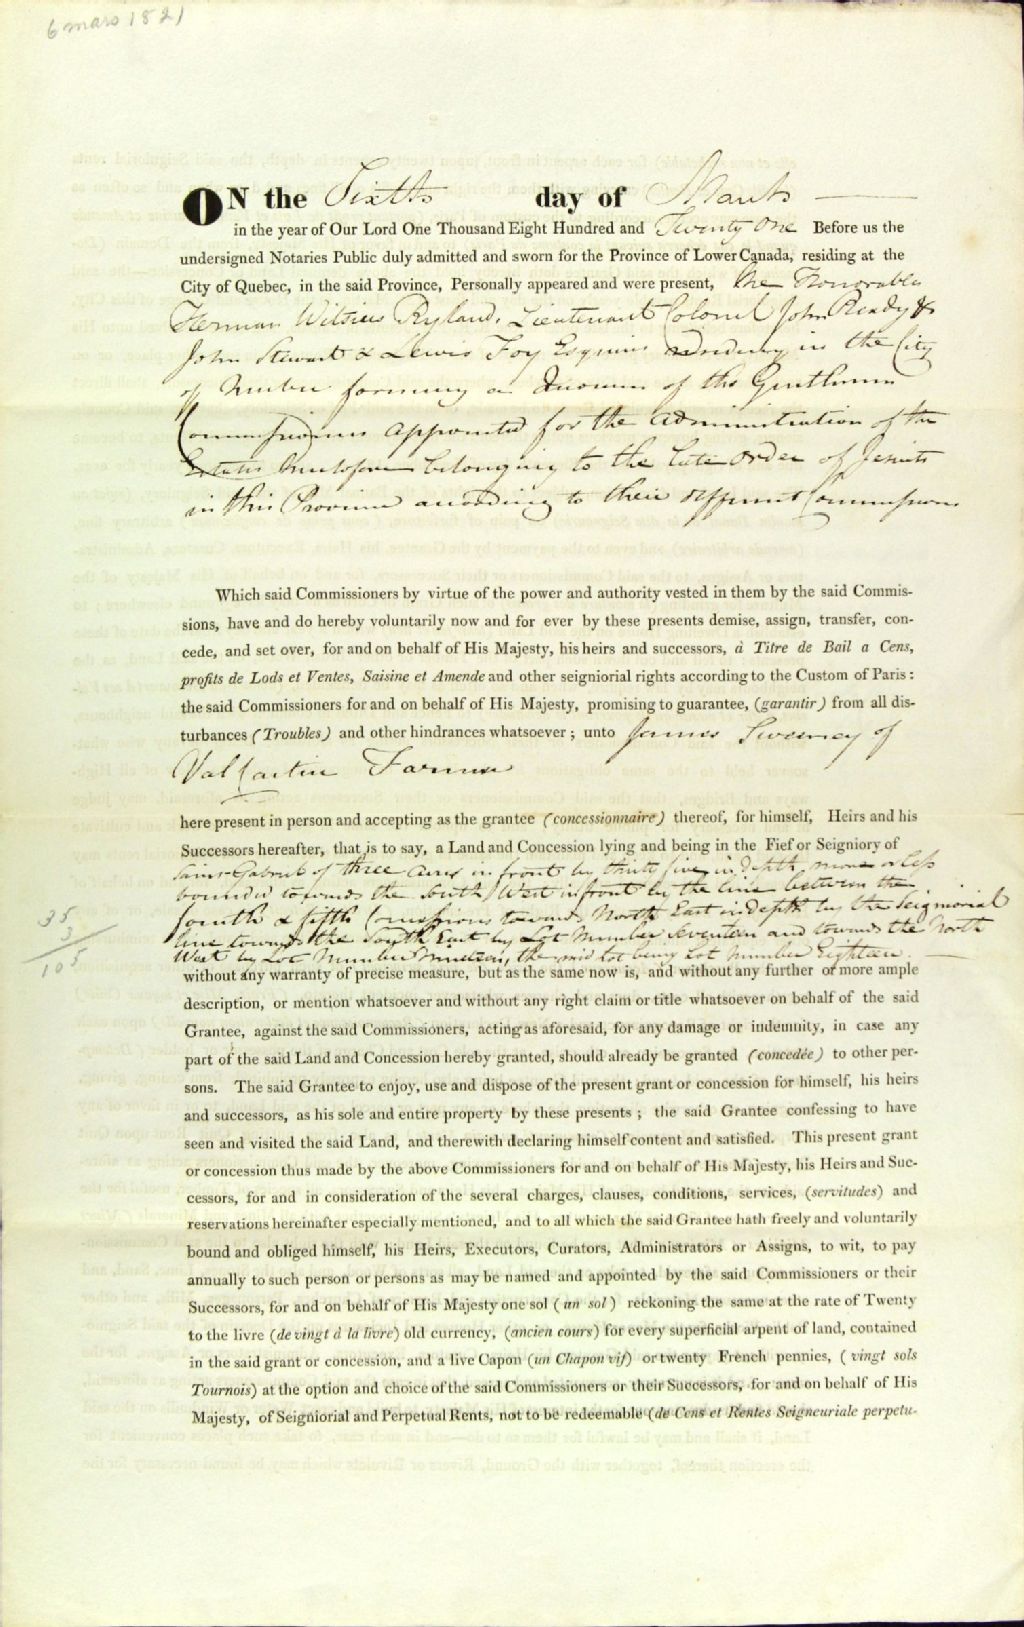 6 mars 1821
ON the Sixth day of March
in the year of Our Lord One Thousand Eight Hundred and Twenty One Before us the
undersigned Notaries Public duly admitted and sworn for the Province of Lower Canada, residing at the
City of Quebec, in the said Province, Personally appeared and were present, The Honorable
Herman Witsius Ryland, Lieutenant Colonel John Ready &
John Stewart & Lewis Foy Esquires residing in the City
of Quebec forming a Quorum of the Gentlemen
Commissioners appointed for the Administration of the
Estates belonging to the late Order of Jesuits
in this Province according to their different Commissions
Which said Commissioners by virtue of the power and authority vested in them by the said Commis-
sions, have and do hereby voluntarily now and for ever by these presents demise, assign, transfer, con-
cede, and set over, for and on behalf of His Majesty, his heirs and successors, à Titre de Bail a Cens,
profits de Lods et Ventes, Saisine et Amende and other seigniorial rights according to the Custom of Paris :
the said Commissioners for and on behalf of His Majesty, promising to guarantee, (garantir) from all dis-
turbances (Troubles) and other hindrances whatsoever ; unto James Sweeney of
Valcartier Farmer
here present in person and accepting as the grantee (concessionnaire) thereof, for himself, Heirs and his
Successors hereafter, that is to say, a Land and Concession lying and being in the Fief or Seigniory of
Saint Gabriel of three acres in front by thirty five in depth more or less
bounded towards the South West in front by the line between the
fourth & fifth Concessions towards North East in depth by the Seigniorial
line towards the South East by Lot Number Seventeen and towards the North
West by Lot Number Nineteen, the said lot being Lot Number Eighteen.
35
3
105
without any warranty of precise measure, but as the same now is, and without any further or more ample
description, or mention whatsoever and without any right claim or title whatsoever on behalf of the said
Grantee, against the said Commissioners, acting as aforesaid, for any damage or indemnity, in case any
part of the said Land and Concession hereby granted, should already be granted (concedée) to other per-
sons. The said Grantee to enjoy, use and dispose of the present grant or concession for himself, his heirs
and successors, as his sole and entire property by these presents ; the said Grantee confessing to have
seen and visited the said Land, and therewith declaring himself content and satisfied. This present grant
or concession thus made by the above Commissioners for and on behalf of His Majesty, his Heirs and Suc-
cessors, for and in consideration of the several charges, clauses, conditions, services, (servitudes) and
reservations hereinafter especially mentioned, and to all which the said Grantee hath freely and voluntarily
bound and obliged himself, his Heirs, Executors, Curators, Administrators or Assigns, to wit, to pay
annually to such person or persons as may be named and appointed by the said Commissioners or their
Successors, for and on behalf of His Majesty one sol ( un sol ) reckoning the same at the rate of Twenty
to the livre (de vingt à la livre) old currency, (ancien cours) for every superficial arpent of land, contained
in the said grant or concession, and a live Capon (un Chapon vif) or twenty French pennies, ( vingt sols
Tournois) at the option and choice of the said Commissioners or their Successors, for and on behalf of His
Majesty, of Seigniorial and Perpetual Rents, not to be redeemable (de Cens et Rentes Seigneuriale perpetu-